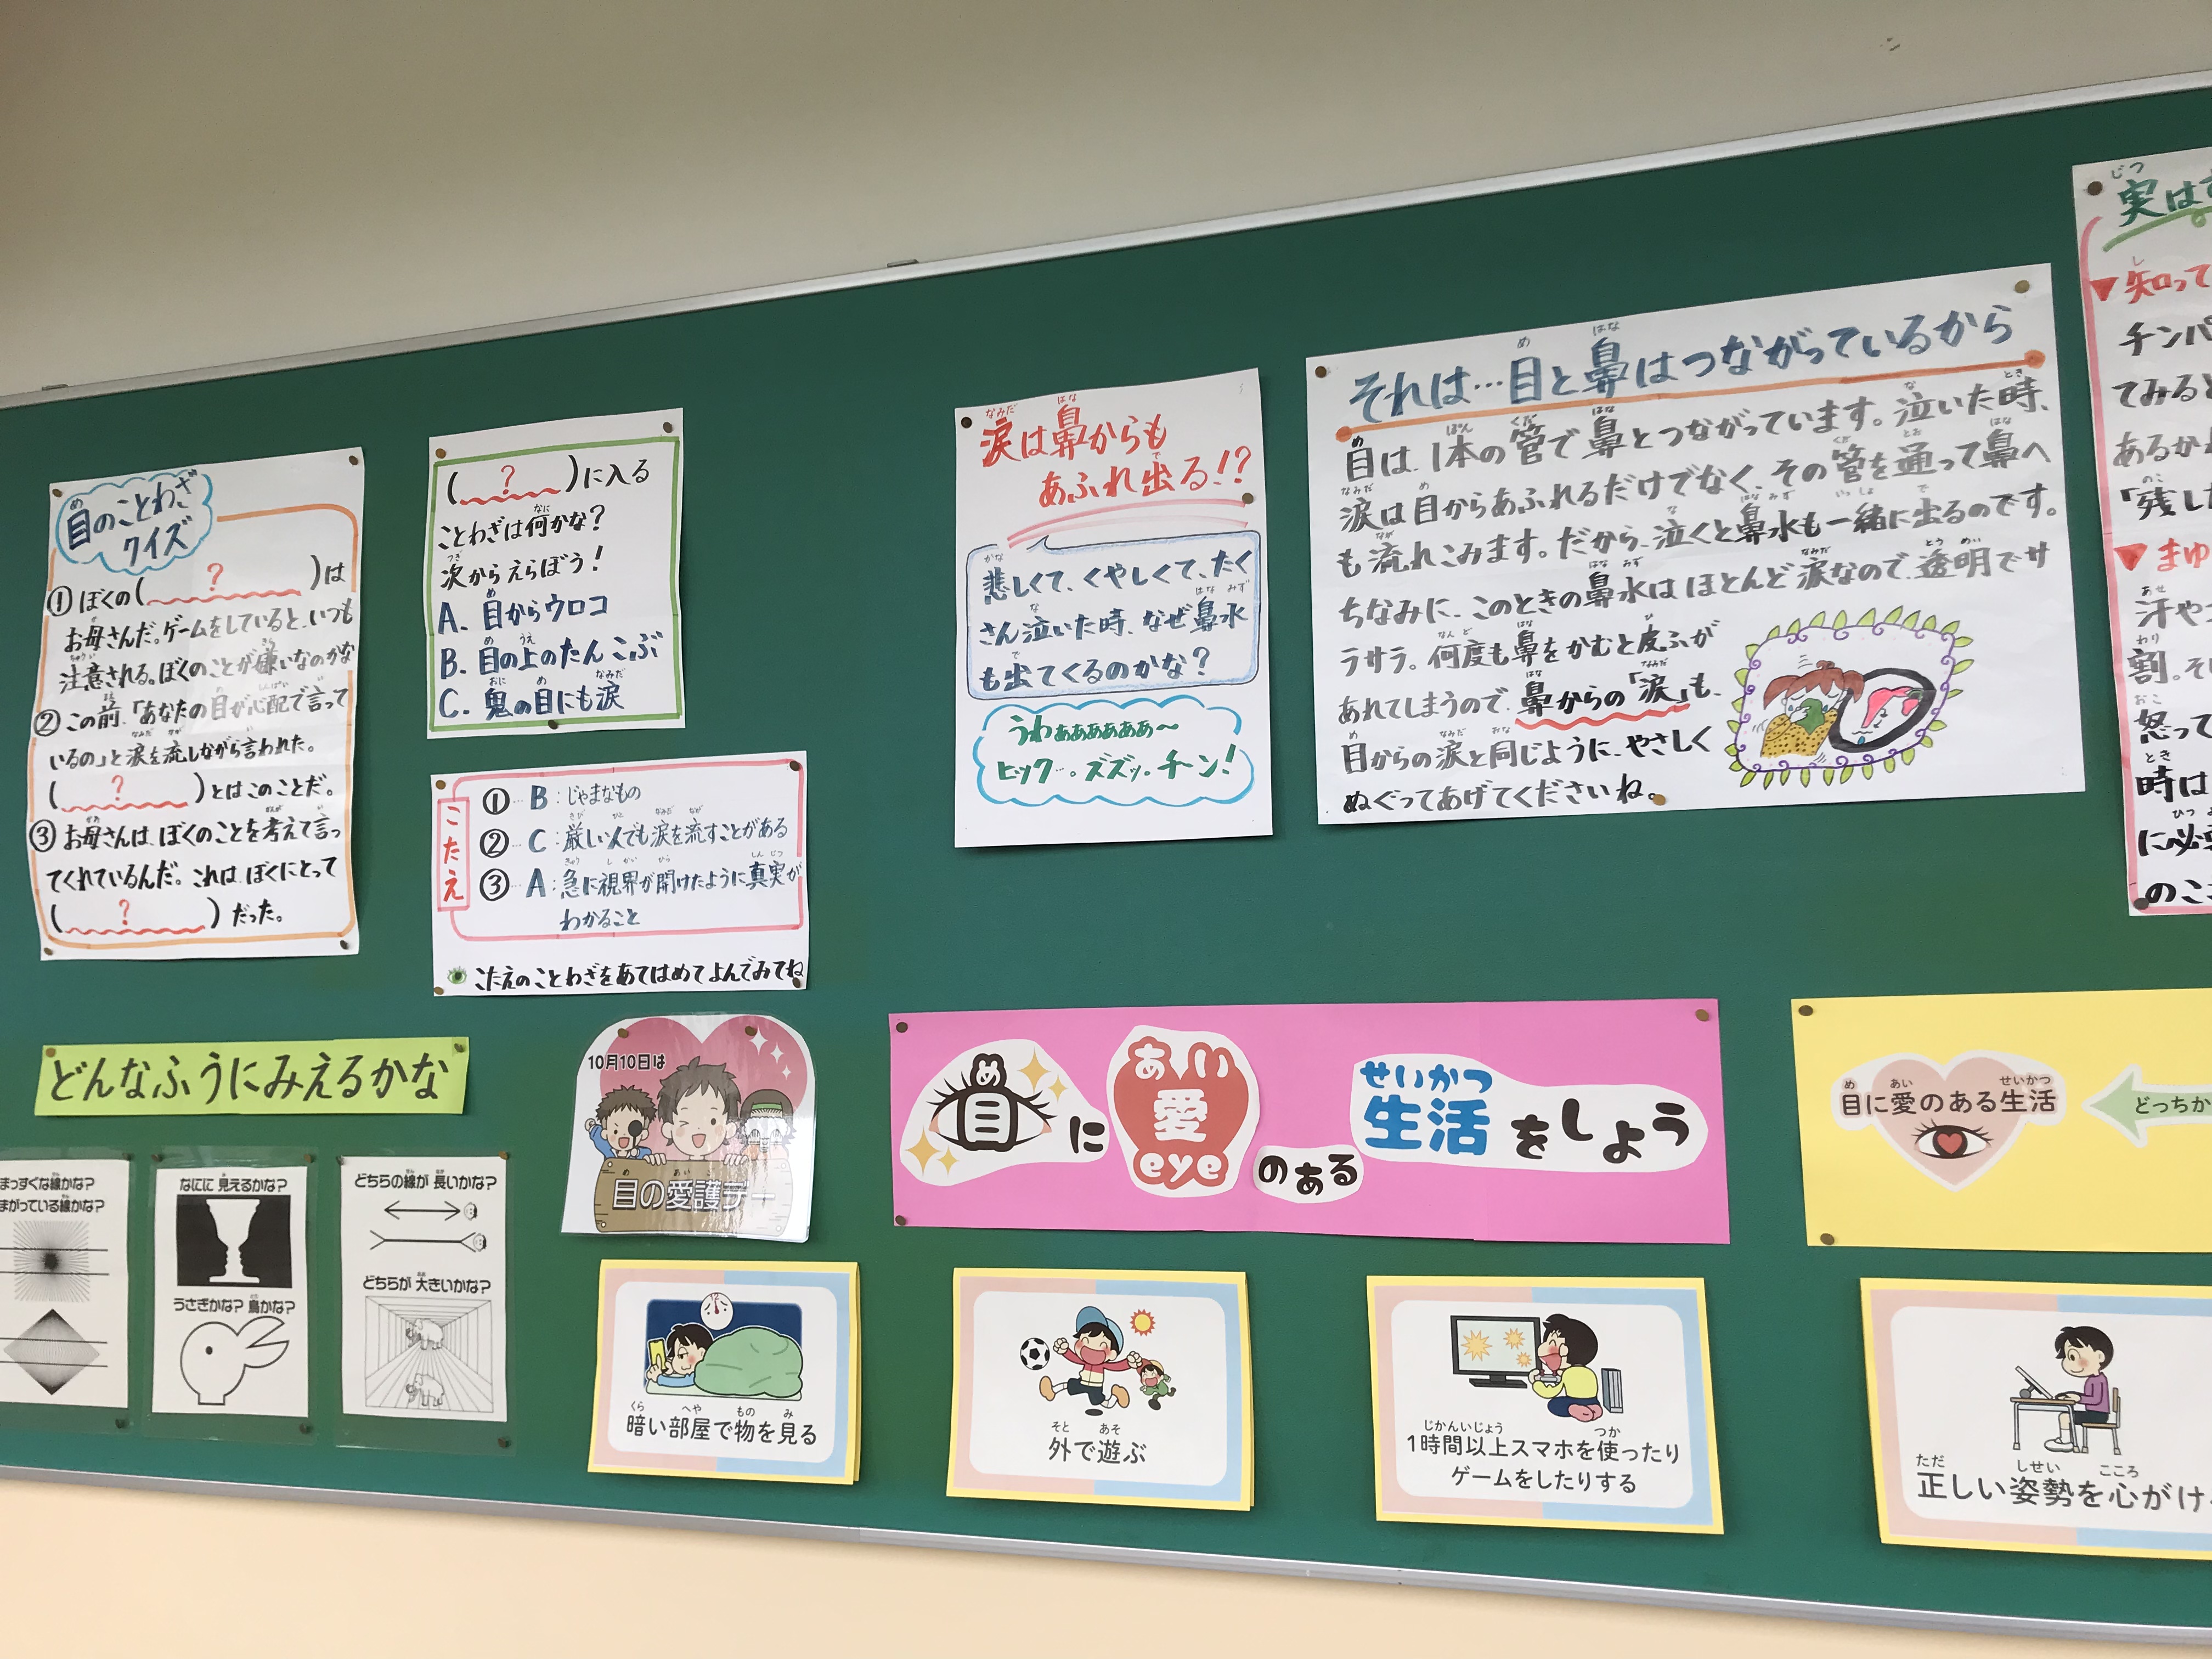 目のことわざ
クイズ
①ぼくの(？)は
お母さんだ。ゲームをしていると、いつも
注意される。ぼくのことが嫌いなのかな
②この前、「あなたの目が心配で言って
いるの」と涙を流しながら言われた。
(？)とはこのことだ。
③お母さんは、ぼくのことを考えて言っ
てくれているんだ。これは、ぼくにとって
(？)だった。
(？)に入る
ことわざは何かな？
次からえらぼう！
A. 目からウロコ
B. 目の上のたんこぶ
C. 鬼の目にも涙
こたえ
①…B：じゃまなもの
②…C：厳しい人でも涙を流すことがある
③…A：急に視界が開けたように真実が
わかること
こたえのことわざをあてはめてよんでみてね
涙は鼻からも
あふれ出る!?
悲しくて、くやしくて、たく
さん泣いた時、なぜ鼻水
も出てくるのかな？
うわぁぁぁぁぁぁ〜
ヒック…。ズズッ。チーン！
それは…目と鼻はつながっているから
目は、1本の管で鼻とつながっています。泣いた時、
涙は目からあふれるだけでなく、その管を通って鼻へ
も流れこみます。だから、泣くと鼻水も一緒に出るのです。
ちなみに、このときの鼻水はほとんど涙なので、透明でサ
ラサラ。何度も鼻をかむと皮ふが
あれてしまうので、鼻からの「涙」も、
目からの涙と同じように、やさしく
ぬぐってあげてくださいね。
実は
知って
チンパ
てみると
あるか
「残し
まゆ
汗や
割。そ
怒って
時は
に必要
のこ
どんなふうにみえるかな
まっすぐな線かな？
まがっている線かな？
なにに 見えるかな？
うさぎかな？ 鳥かな？
どちらの線が 長いかな？
どちらが 大きいかな？
10月10日は
目の愛護デー
目に愛eyeのある生活をしよう
目に愛のある生活
どっちか
暗い部屋で物を見る
外で遊ぶ
1時間以上スマホを使ったり
ゲームをしたりする
正しい姿勢を心がけ